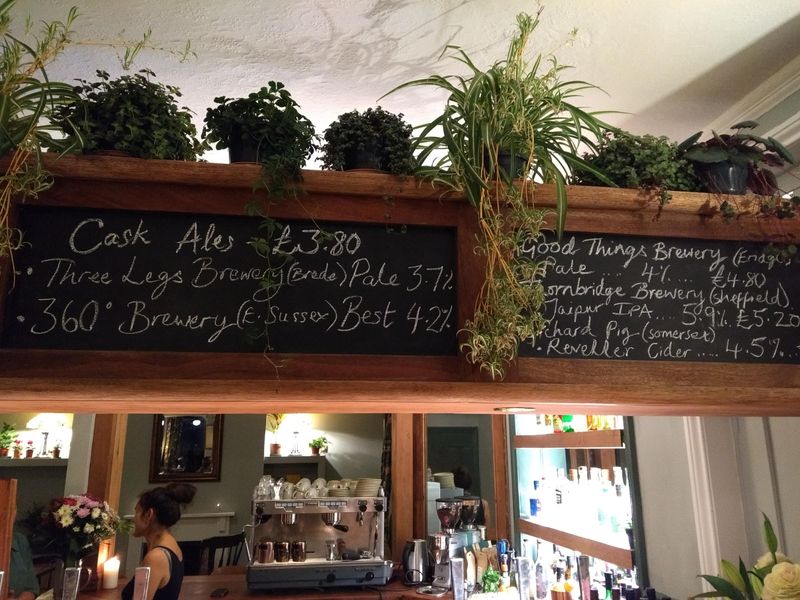 Cask Ales - £3.80
• Three Legs Brewery (Brede) Pale 3.7%
• 360° Brewery (E. Sussex) Best 4.2%
Good Things Brewery
Pale .... 4% £4.80
Brewery (Sheffield)
Jaipur IPA .... 5.9% £5.20
Pig (Somerset)
• Reveller Cider .... 4.5%